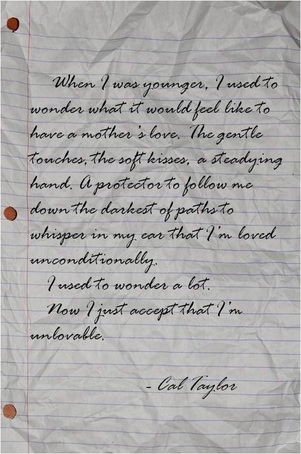 When I was younger, I used to
wonder what it would feel like to
have a mother's love. The gentle
touches, the soft kisses, a steadying
hand. A protector to follow me
down the darkest of paths to
whisper in my ear that I'm loved
unconditionally.
I used to wonder a lot.
Now I just accept that I'm
unlovable.
- Cal Taylor